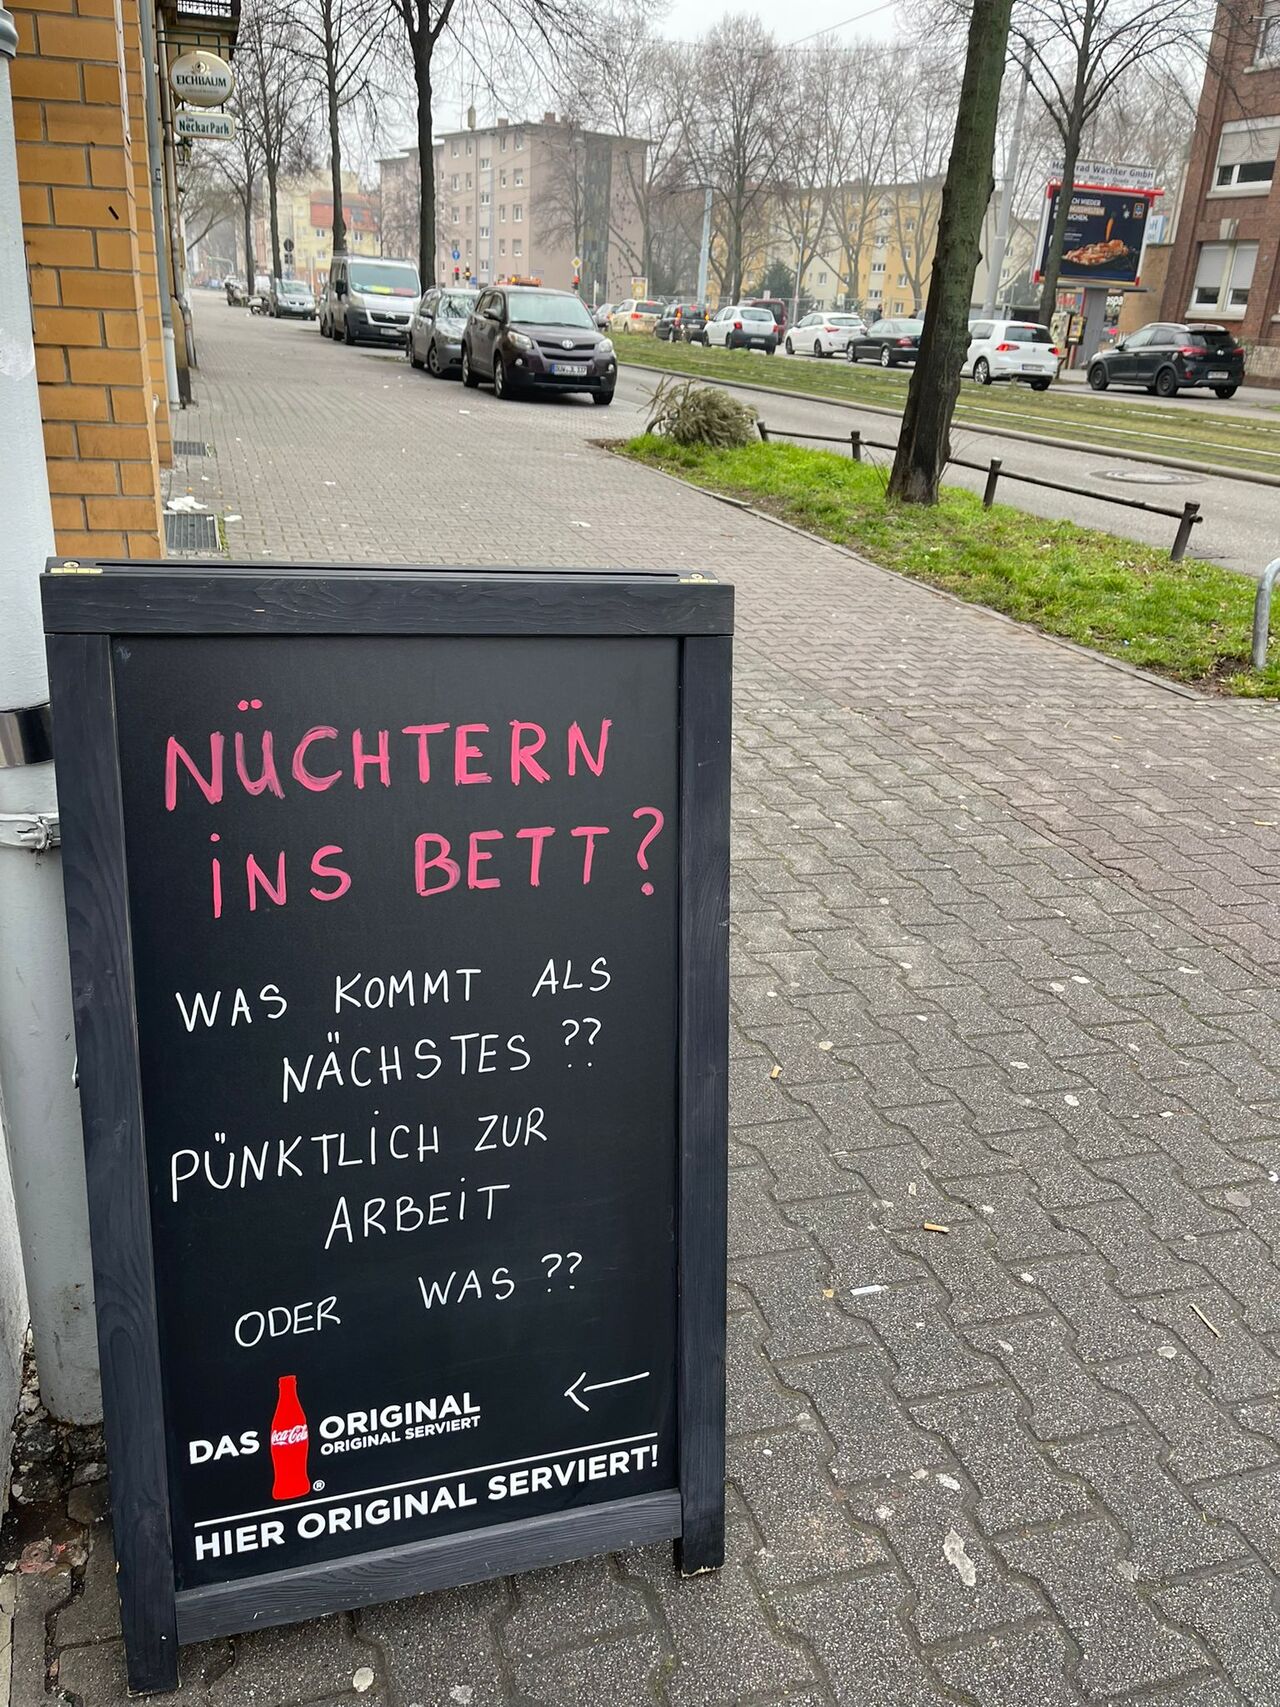 EICHBAUM
NeckarPark
Wächter GmbH
NÜCHTERN
iNS BETT?
WAS KOMMT ALS
NÄCHSTES ??
PÜNKTLiCH ZUR
ARBEiT
ODER WAS ??
←
DAS Coca-Cola ORIGINAL
ORIGINAL SERVIERT
®
HIER ORIGINAL SERVIERT!